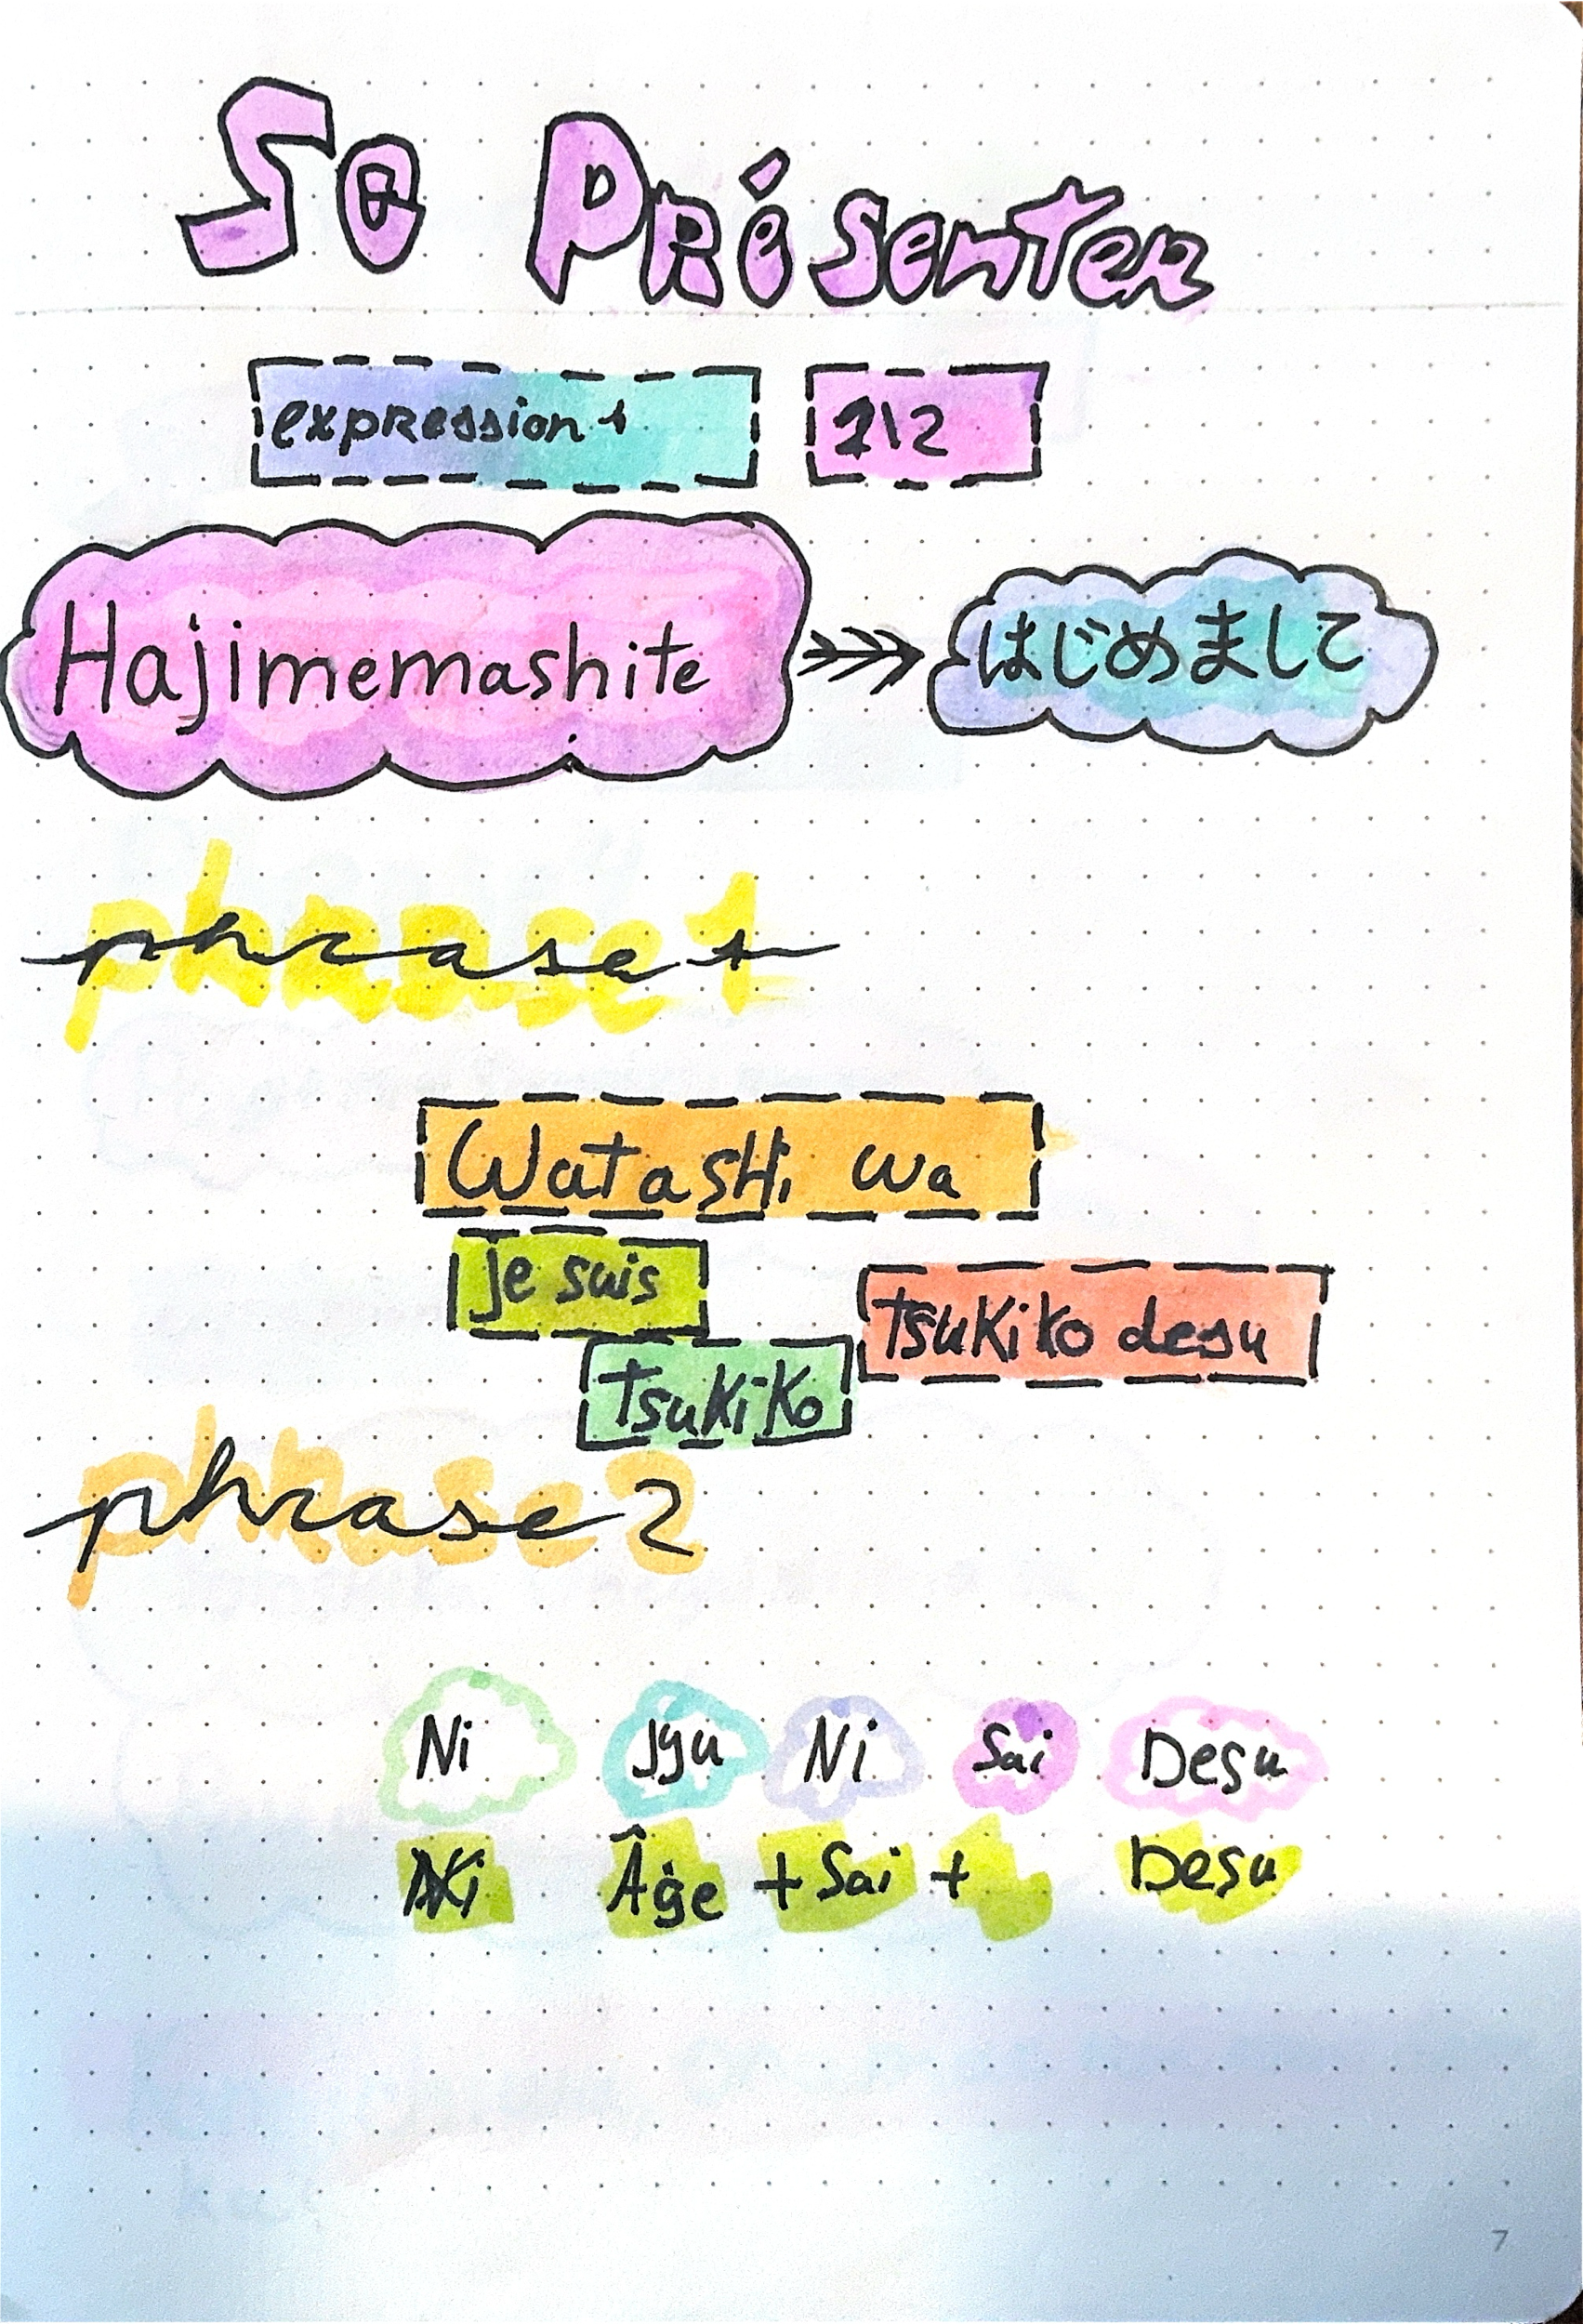 Se Présenter
expression 1 1\2
Hajimemashite はじめまして
phrase 1
Watashi wa
je suis
Tsukiko desu
Tsukiko
phrase 2
Ni Jyu Ni Sai Desu
Âge + Sai + Desu
7